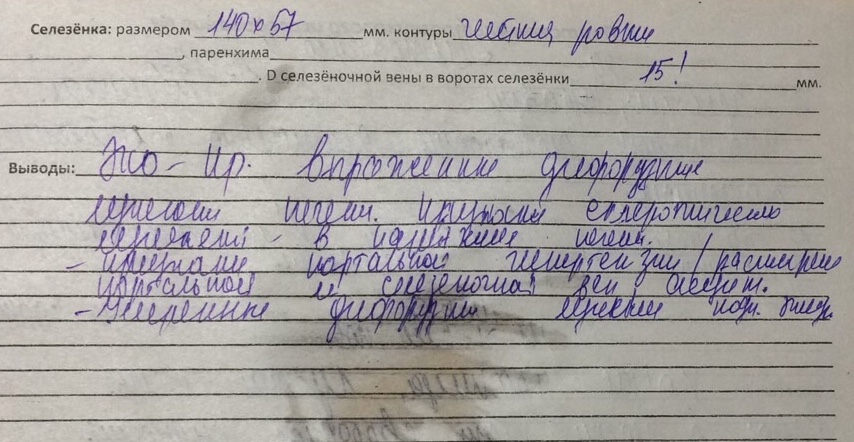 Селезёнка: размером 140х57 мм. контуры четкие ровные
, паренхима
. D селезёночной вены в воротах селезёнки 15! мм.
Выводы: Эхо-пр. выраженные диффузные
изменения печени. признаки склеротических
изменений - в паренхиме печени.
- признаки портальной гипертензии / расширение
портальной и селезеночной вен / асцит.
- Умеренные диффузные изменения подж. желез.